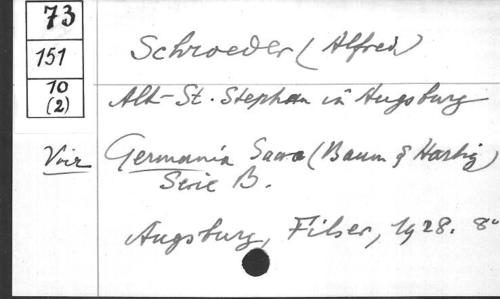 73
151
10
(2)
Schroeder (Alfred)
Alt-St. Stephan in Augsburg
Voir Germania Sacra (Baum & Hartig)
Serie B.
Augsburg, Filser, 1928. 8°